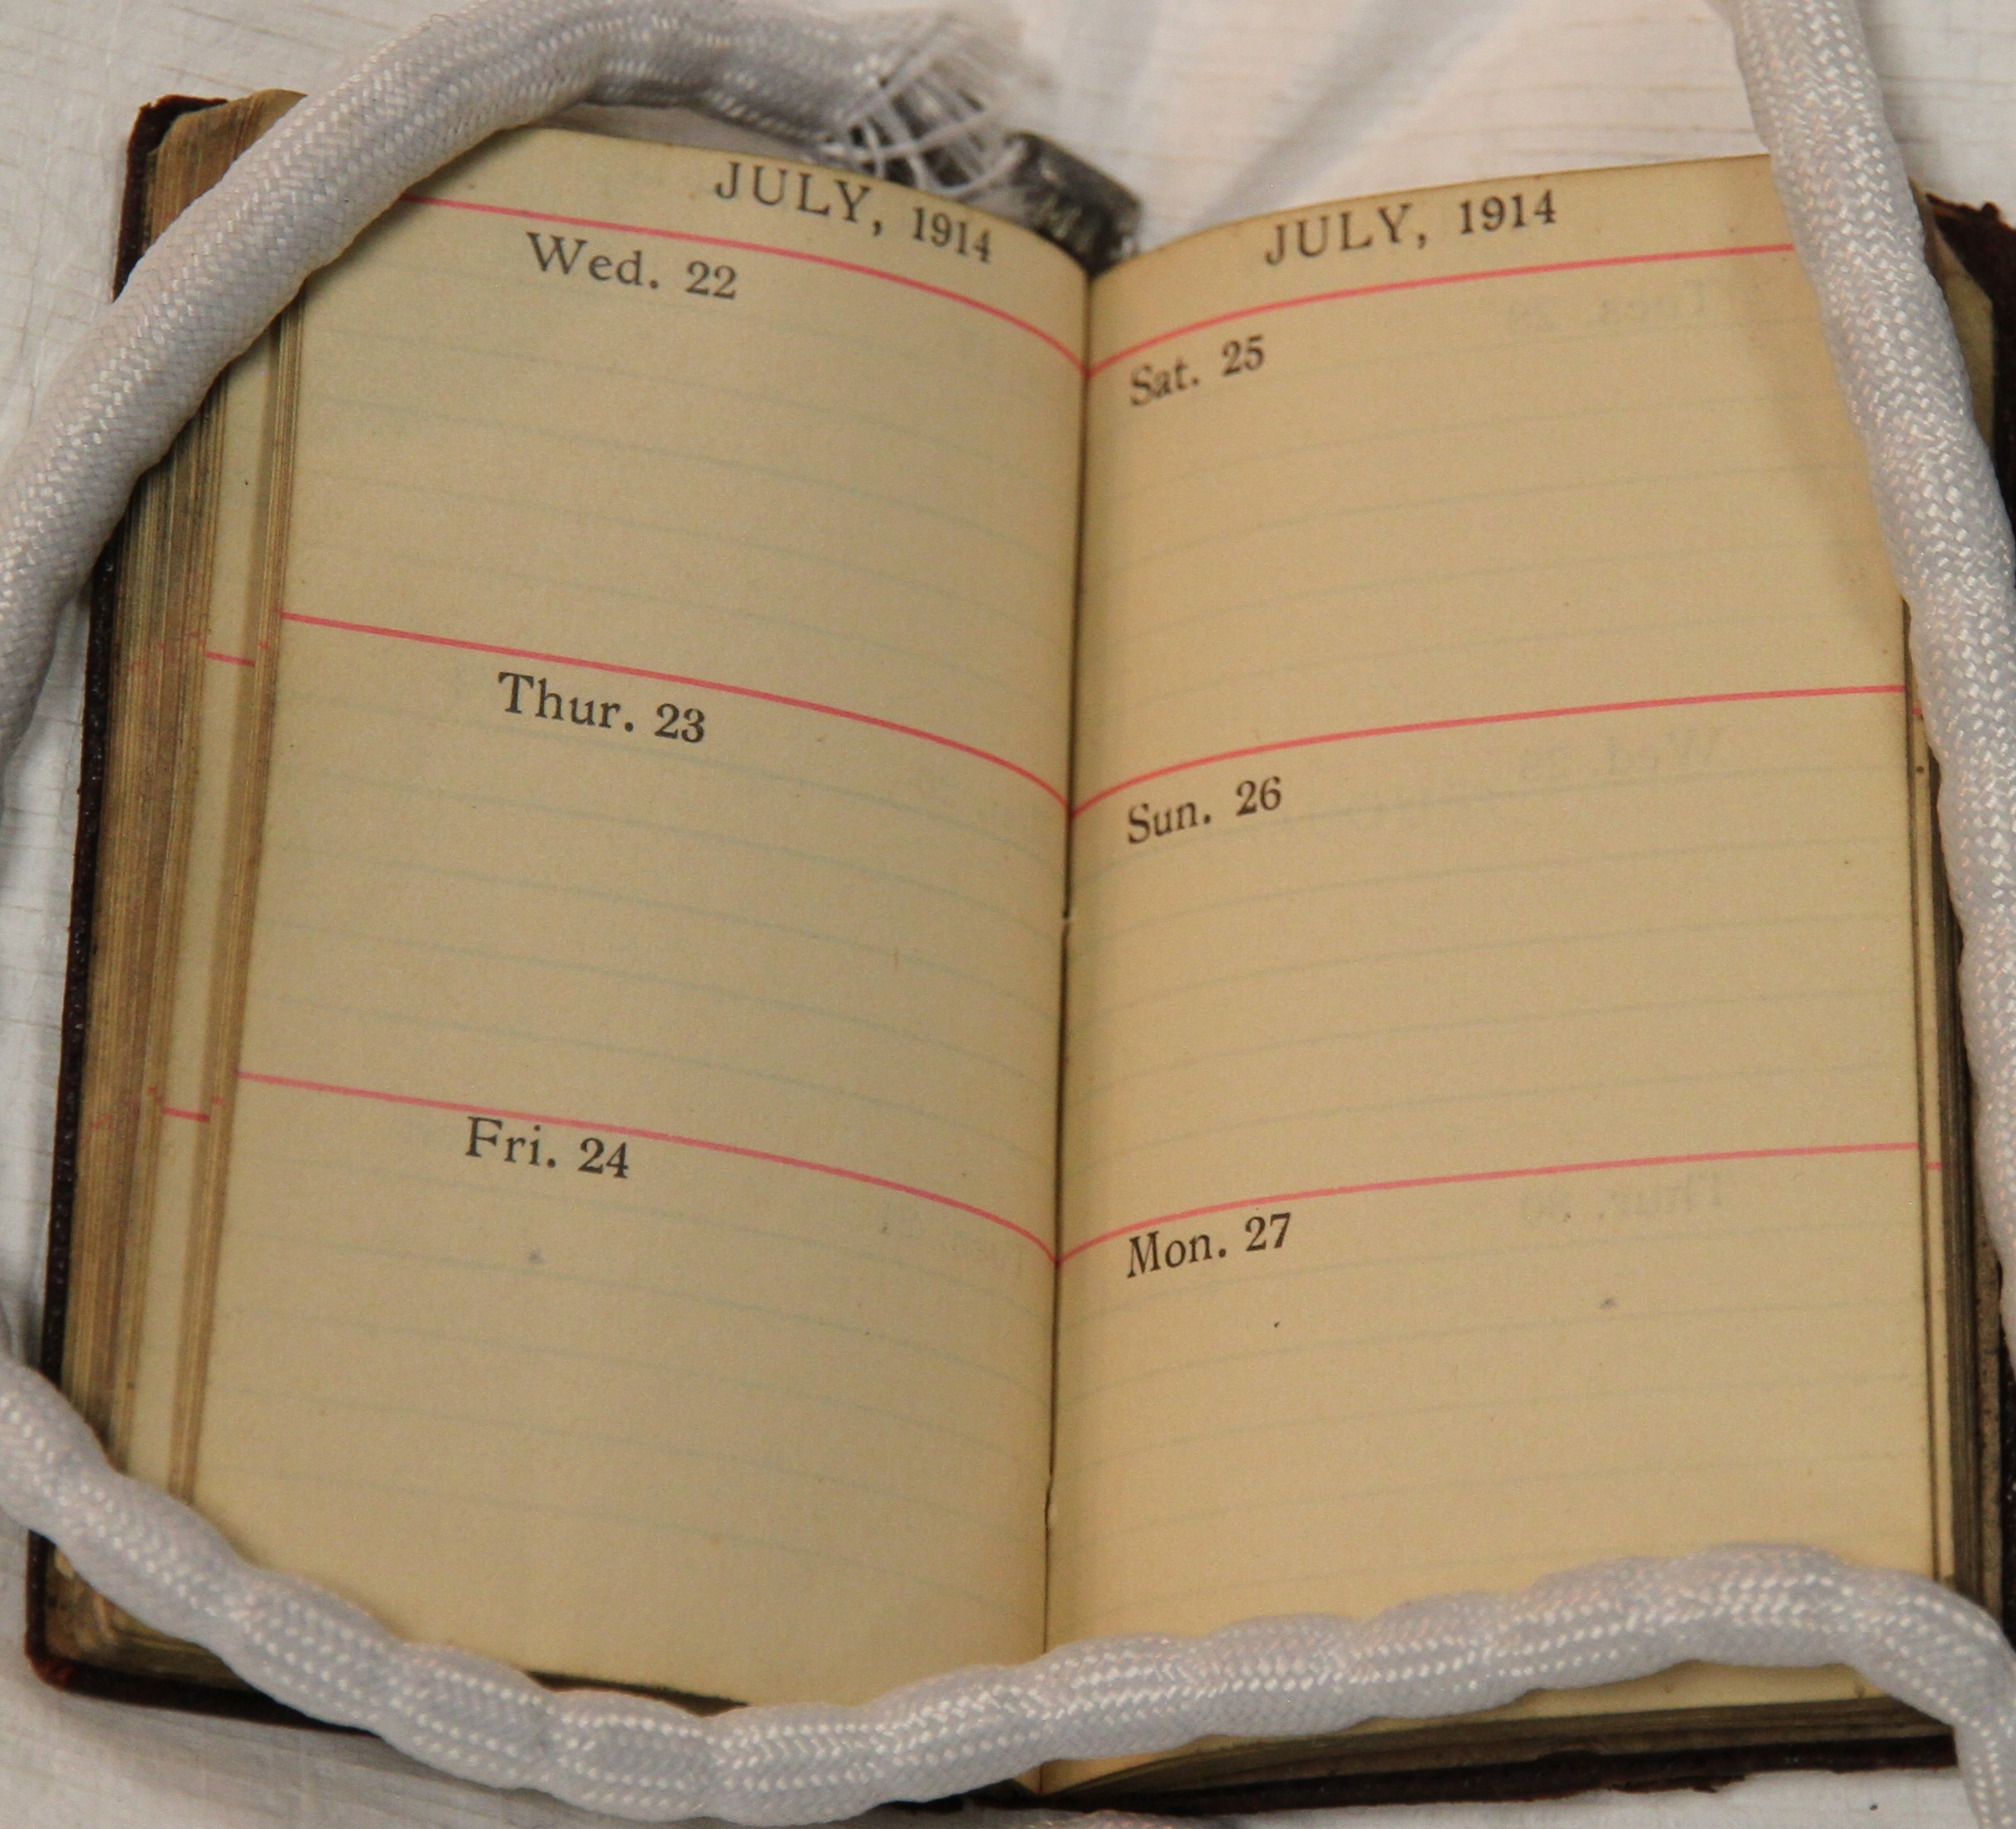 JULY, 1914
Wed. 22
Thur. 23
Fri. 24
JULY, 1914
Sat. 25
Sun. 26
Mon. 27